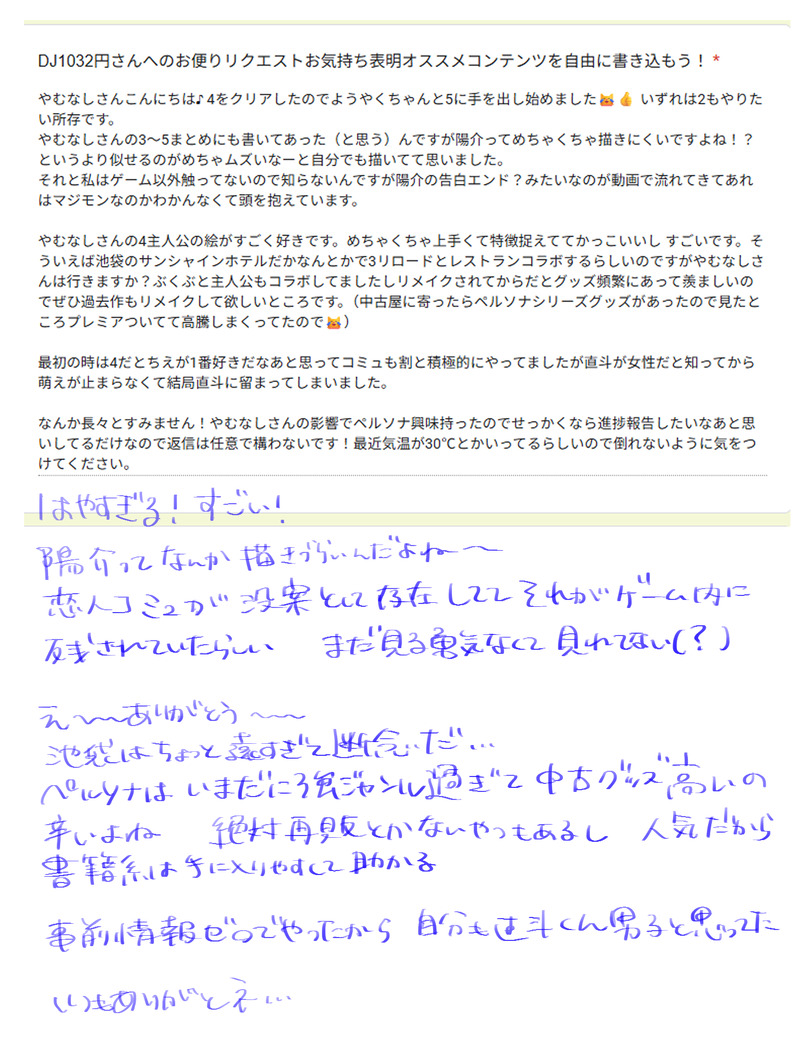 DJ1032円さんへのお便りリクエストお気持ち表明オススメコンテンツを自由に書き込もう！ *
やむなしさんこんにちは♪ 4をクリアしたのでようやくちゃんと5に手を出し始めました😹👍 いずれは2もやりた
い所存です。
やむなしさんの3〜5まとめにも書いてあった（と思う）んですが陽介ってめちゃくちゃ描きにくいですよね！？
というより似せるのがめちゃムズいなーと自分でも描いてて思いました。
それと私はゲーム以外触ってないので知らないんですが陽介の告白エンド？みたいなのが動画で流れてきてあれ
はマジモンなのかわかんなくて頭を抱えています。
やむなしさんの4主人公の絵がすごく好きです。めちゃくちゃ上手くて特徴捉えててかっこいいし すごいです。そ
ういえば池袋のサンシャインホテルだかなんとかで3リロードとレストランコラボするらしいのですがやむなしさ
んは行きますか？ぶくぶと主人公もコラボしてましたしリメイクされてからだとグッズ頻繁にあって羨ましいの
でぜひ過去作もリメイクして欲しいところです。（中古屋に寄ったらペルソナシリーズグッズがあったので見たと
ころプレミアついてて高騰しまくってたので😹）
最初の時は4だとちえが1番好きだなあと思ってコミュも割と積極的にやってましたが直斗が女性だと知ってから
萌えが止まらなくて結局直斗に留まってしまいました。
なんか長々とすみません！やむなしさんの影響でペルソナ興味持ったのでせっかくなら進捗報告したいなあと思
いしてるだけなので返信は任意で構わないです！最近気温が30℃とかいってるらしいので倒れないように気をつ
けてください。
はやすぎる！すごい！
陽介ってなんか描きづらいんだよね〜
恋人コミュが没案として存在しててそれがゲーム内に
残されていたらしい まだ見る勇気なくて見れてない(？)
え〜〜ありがとう〜〜
池袋はちょっと遠すぎて断念だ…
ペルソナはいまだに強ジャンル過ぎて中古グッズ高いの
辛いよね 絶対再販とかないやつもあるし 人気だから
書籍系は手に入りやすくて助かる
事前情報ゼロでやったから 自分も直斗くん男子と思ってた
いつもありがとネ…